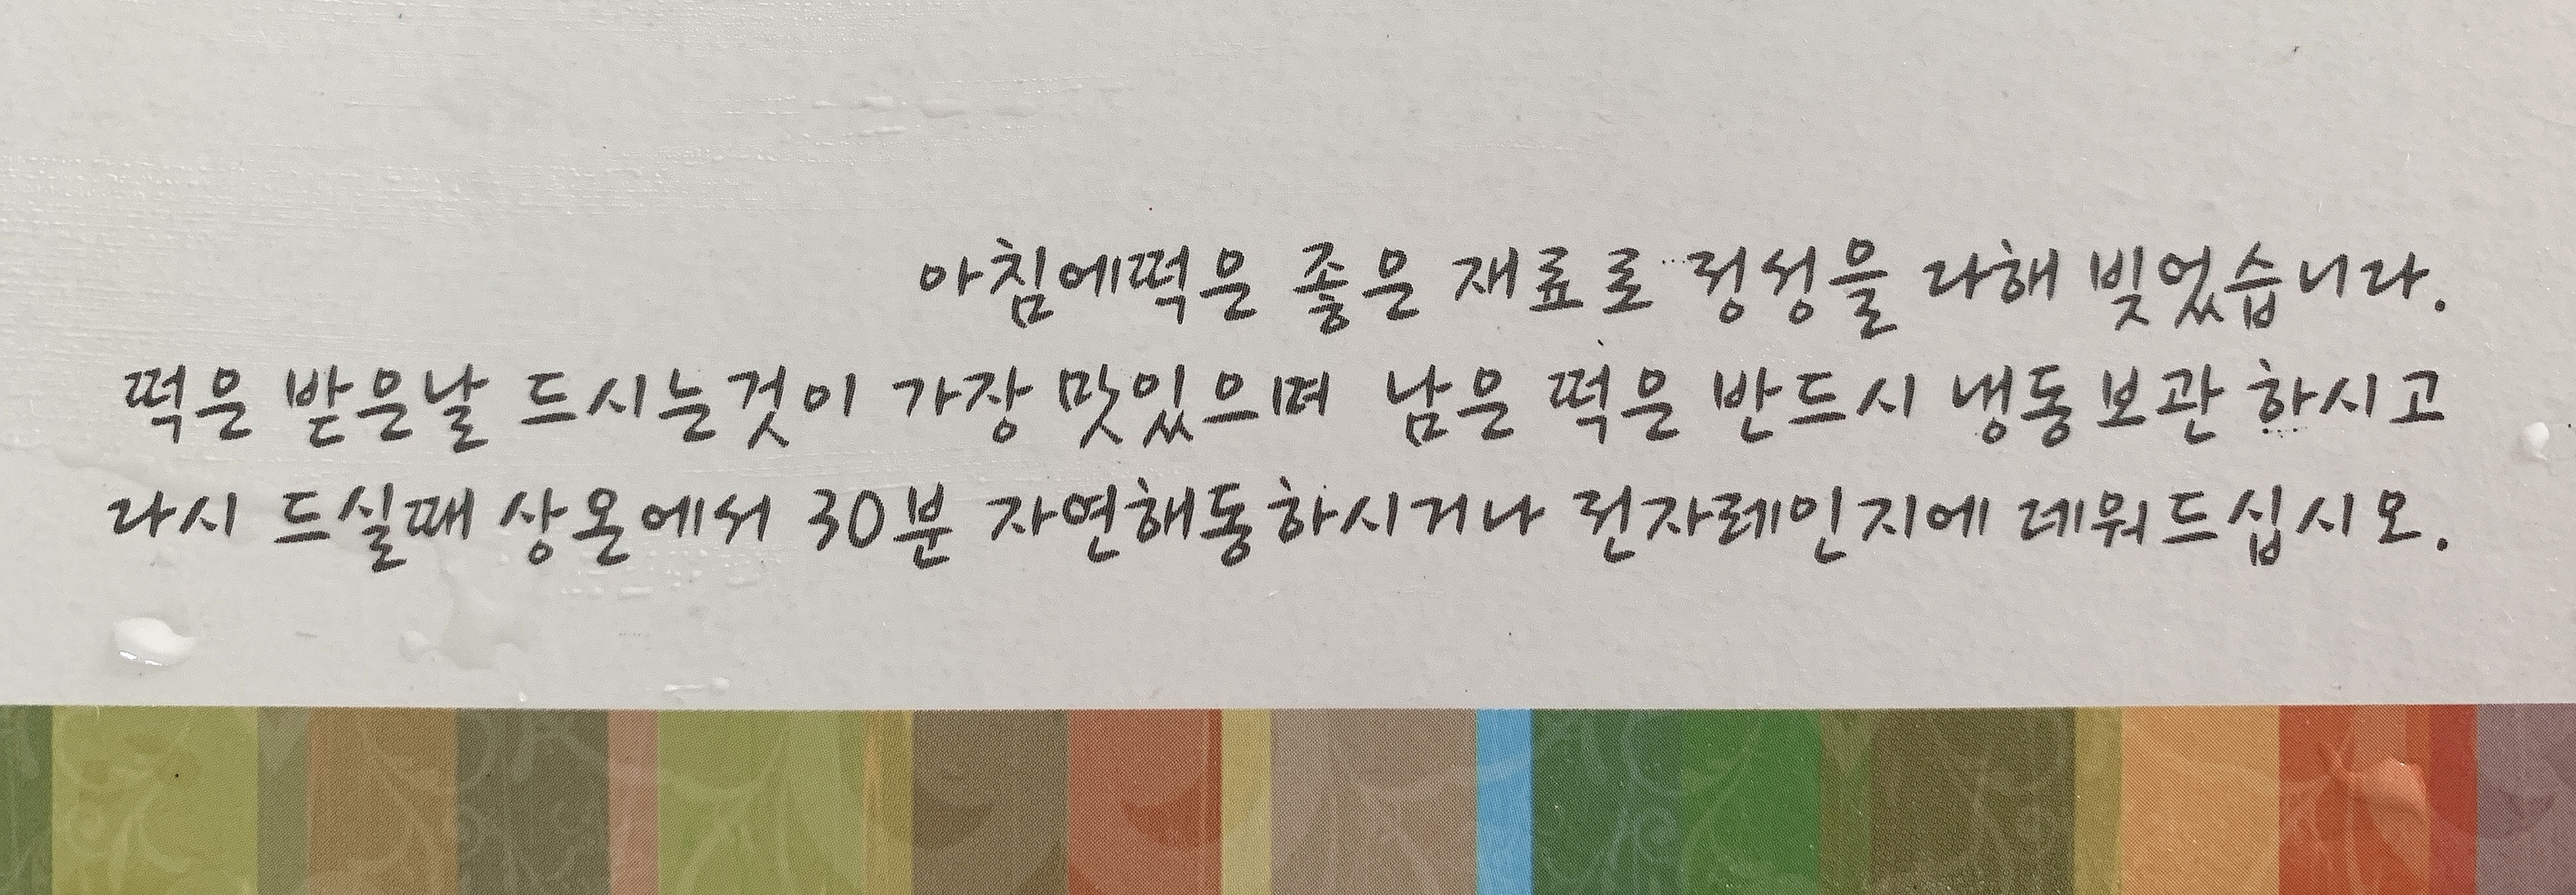 아침에떡은 좋은 재료로 정성을 다해 빚었습니다.
떡은 받은날 드시는것이 가장 맛있으며 남은 떡은 반드시 냉동보관 하시고
다시 드실때 상온에서 30분 자연해동하시거나 전자레인지에 데워드십시오.